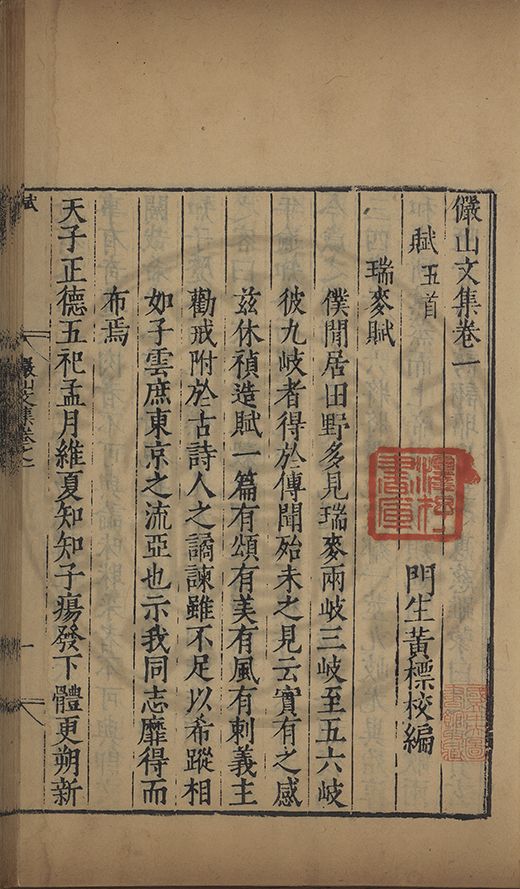 儼山文集卷一
門生黃標校編
賦五首
瑞麥賦
僕閒居田野多見瑞麥兩岐三岐至五六岐
彼九岐者得於傳聞殆未之見云實有之感
兹休禎造賦一篇有頌有美有風有刺義主
勸戒附於古詩人之譎諫雖不足以希蹤相
如子雲庶東京之流亞也示我同志靡得而
布焉
天子正德五祀孟月維夏知知子瘍發下體更朔新
賦
儼山文集卷之一
一